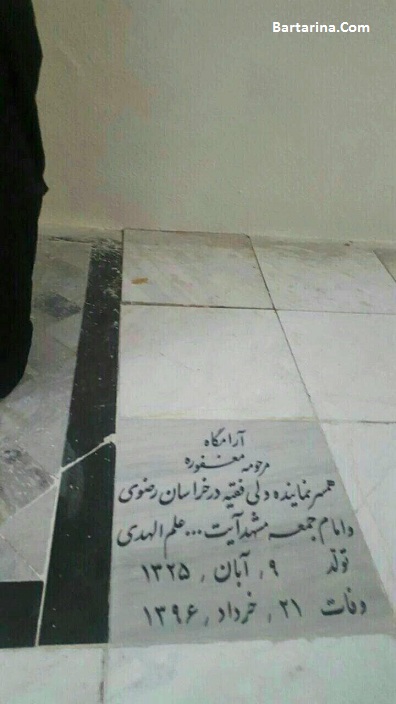 Bartarina.Com
آرامگاه
مرحومه مغفوره
همسر نماینده ولی فقیه در خراسان رضوی
و امام جمعه مشهد آیت ... علم الهدی
تولد ۹ , آبان , ۱۳۲۵
وفات ۲۱ , خرداد , ۱۳۹۶